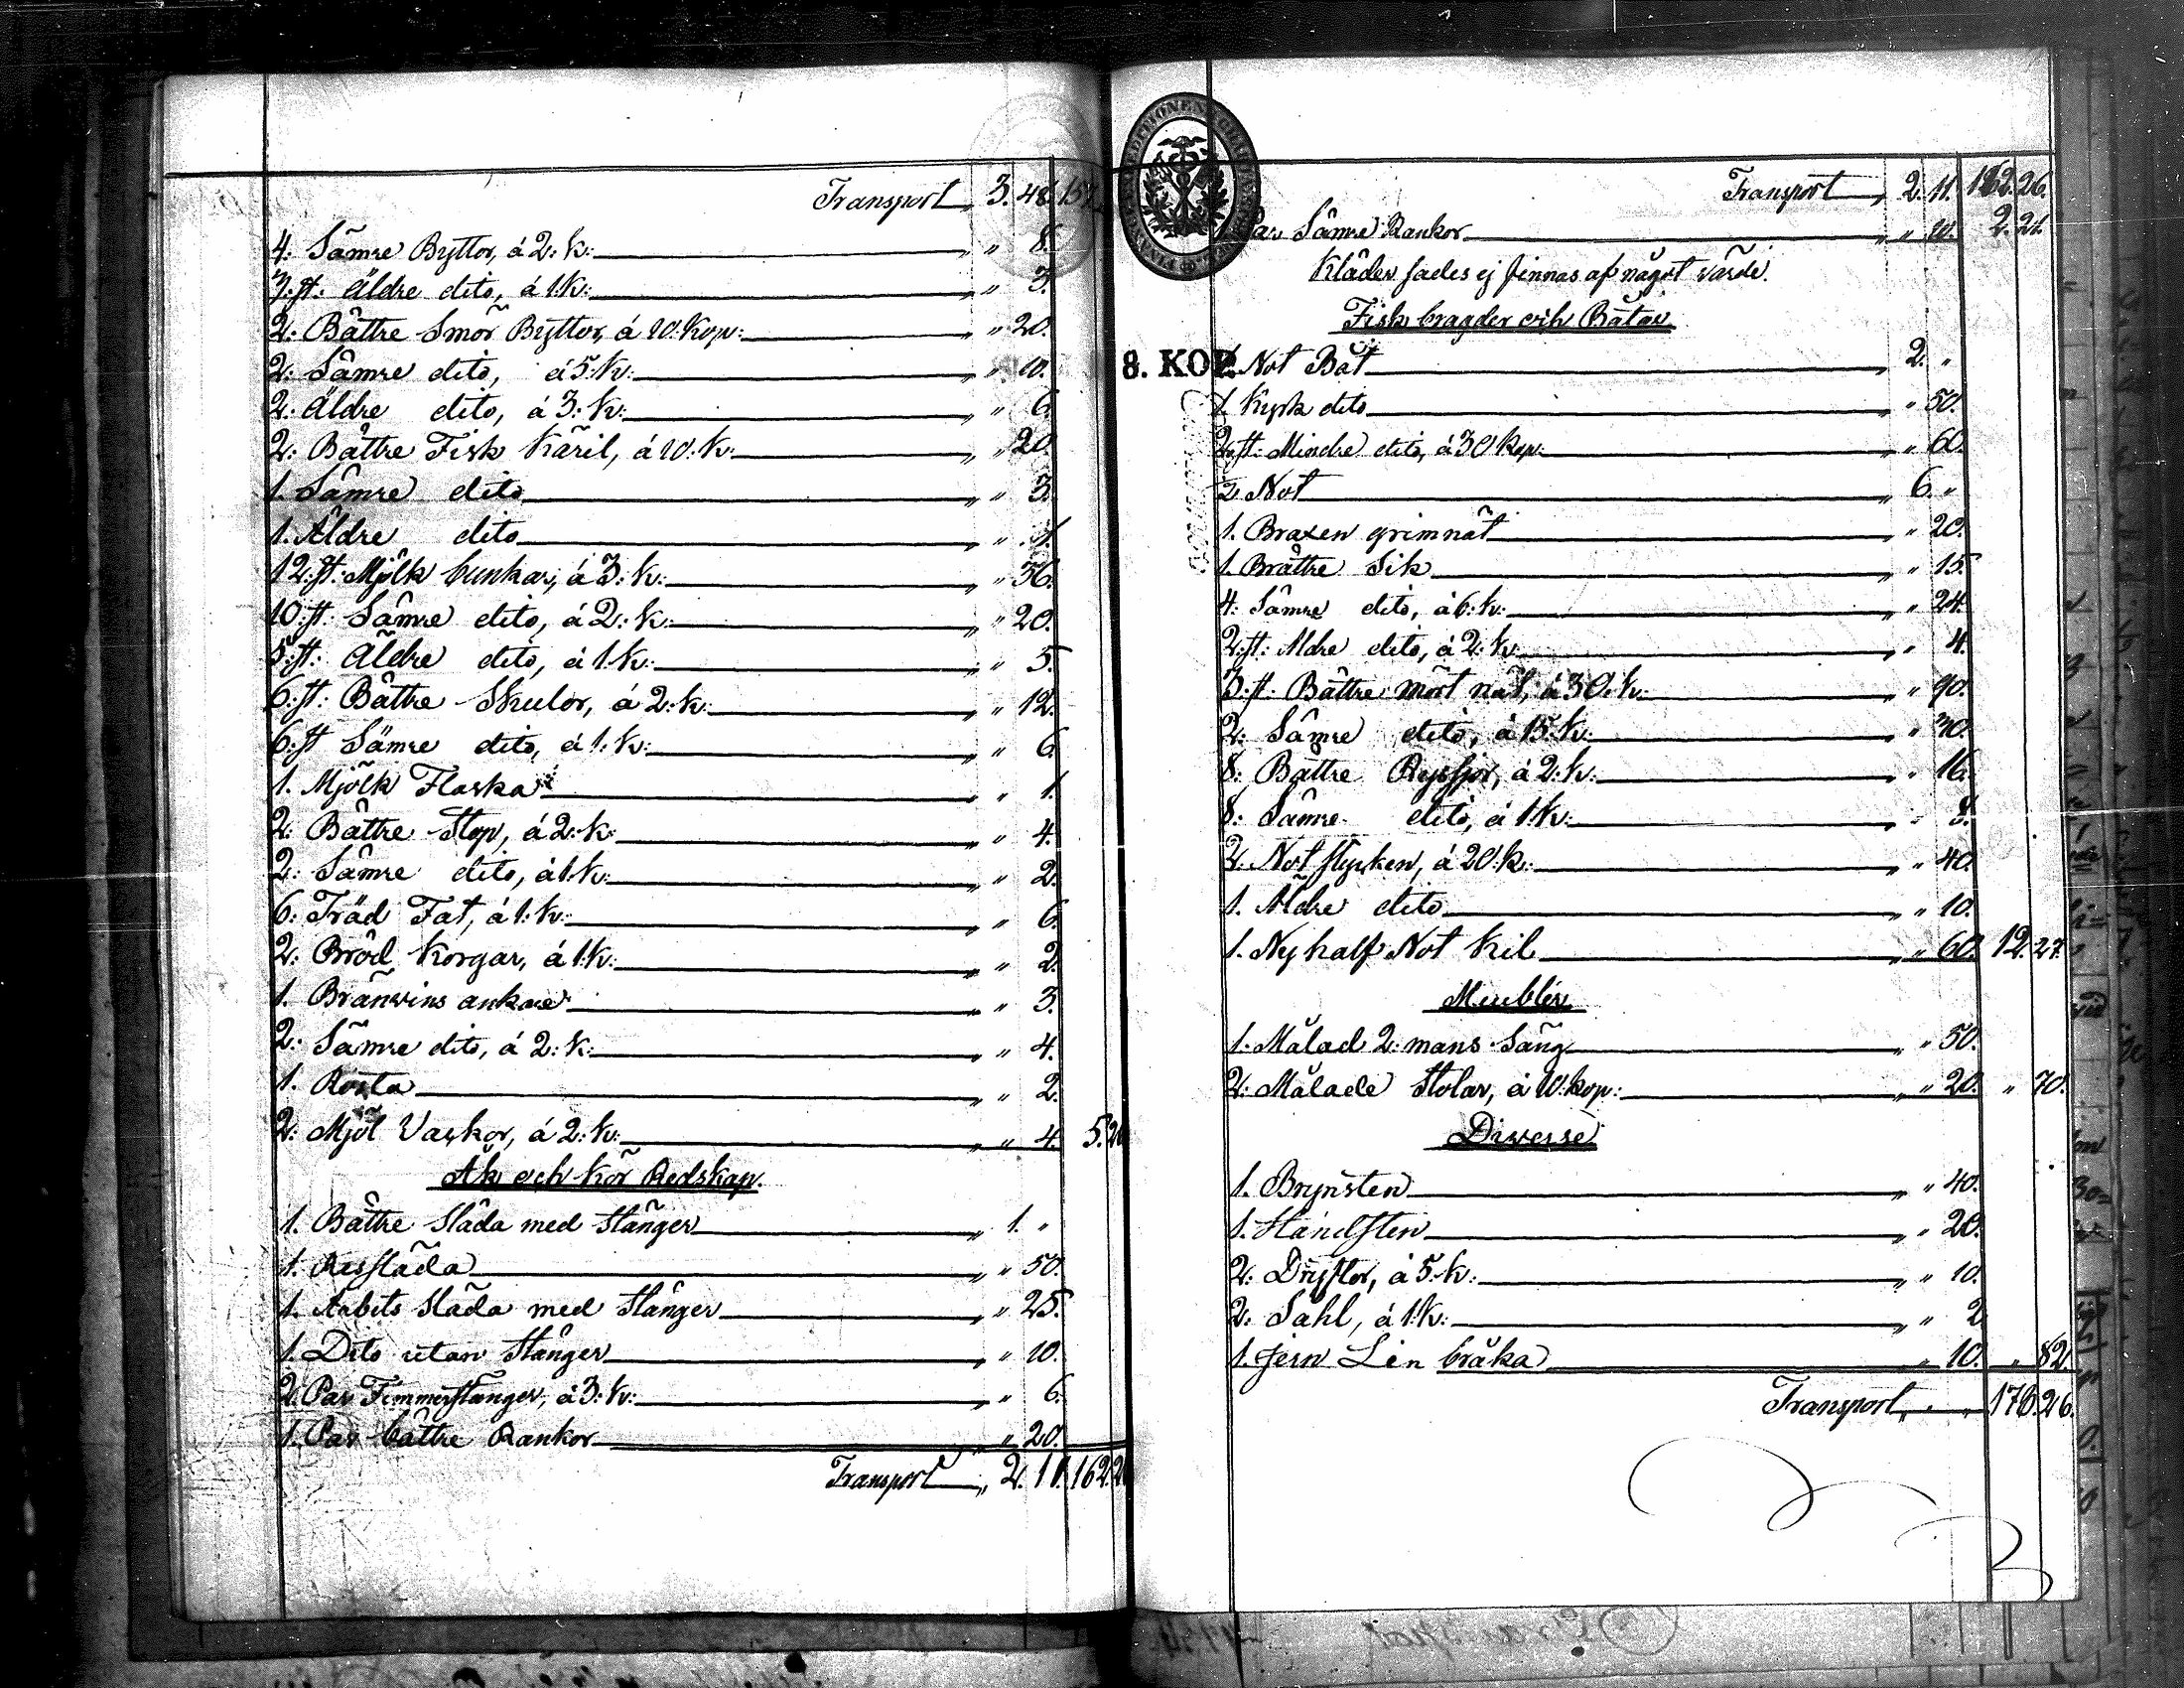 Transport „ 3. 48. 157.
4. Sämre Byttor, á 2. k: „ „ 8.
3. st: Äldre dito, á 1. k: „ „ 3.
2: Bättre Smör Byttor, á 10. Kop: „ „ 20.
2: Sämre dito, á 5: k: „ „ 10.
2: Äldre dito, á 3: k: „ „ 6.
2: Bättre Fisk käril, á 10. k: „ „ 20.
1. Sämre dito „ „ 3.
1. Äldre dito „ „ 1.
12: st: Mjölk bunkar, á 3: k: „ „ 36.
10: st: Sämre dito, á 2: k: „ „ 20.
5: st: Äldre dito, á 1. k: „ „ 5.
6: st: Bättre Skulor, á 2: k: „ „ 12.
6: st Sämre dito, á 1: k: „ „ 6.
1. Mjölk Flaska „ „ 1.
2: Bättre Stop, á 2: k: „ „ 4.
2: Sämre dito, á 1: k: „ „ 2.
6: Träd Fat, á 1: k: „ „ 6.
2: Bröd Korgar, á 1: k: „ „ 2.
1. Bränvins ankare „ „ 3.
2: Sämre dito, á 2: k: „ „ 4.
1. Rosta „ „ 2.
2: Mjöl Vaskor, á 2: k: „ „ 4. 5.
Åk och Kör Redskap.
1. Bättre Släda med Stänger „ 1. „
1. Ressläda „ „ 50.
1. Arbets Släda med Stänger „ „ 25.
1. Dito utan Stänger „ „ 10.
2. Par Timmerstänger, á 3: k: „ „ 6.
1. Par bättre Rankor „ „ 20.
Transport „ 2. 11. 162.
Transport „ 2. 11. 162. 26.
1. Par Sämre Rankor „ „ 10. 2. 21.
Kläder sades ej finnas af något värde.
Fisk bragder och Båtar
8. KOP.
1. Not Båt „ 2. „
1. Kyrk dito „ „ 50.
2. st: Mindre dito, á 30 kop: „ „ 60.
2 Not „ 6. „
1. Braxen grimnät „ „ 20.
1. Brättre Sik „ „ 15.
4: Sämre dito, á 6: k: „ „ 24.
2: st: Äldre dito, á 2: k: „ „ 4.
3: st: Bättre mört nät, á 30. k: „ „ 90.
2: Sämre dito, á 15: k: „ „ 30.
8: Bättre Ryssjor, á 2: k: „ „ 16.
8: Sämre dito, á 1: k: „ „ 8.
2: Not stycken, á 20. k: „ „ 40.
1. Äldre dito „ „ 10.
1. Ny half Not Kil „ „ 60. 12. 27.
Meubler
1. Målad 2: mans Säng „ „ 50.
2: Målade Stolar, á 10. kop: „ „ 20. „ 70.
Diverse
1. Brynsten „ „ 40.
1. Handsten „ „ 20.
2: Dryftor, á 5: k: „ „ 10.
2. Sahl, á 1: k: „ „ 2
1. Jern Lin bråka „ „ 10. „ 82.
Transport „ „ 176. 26.